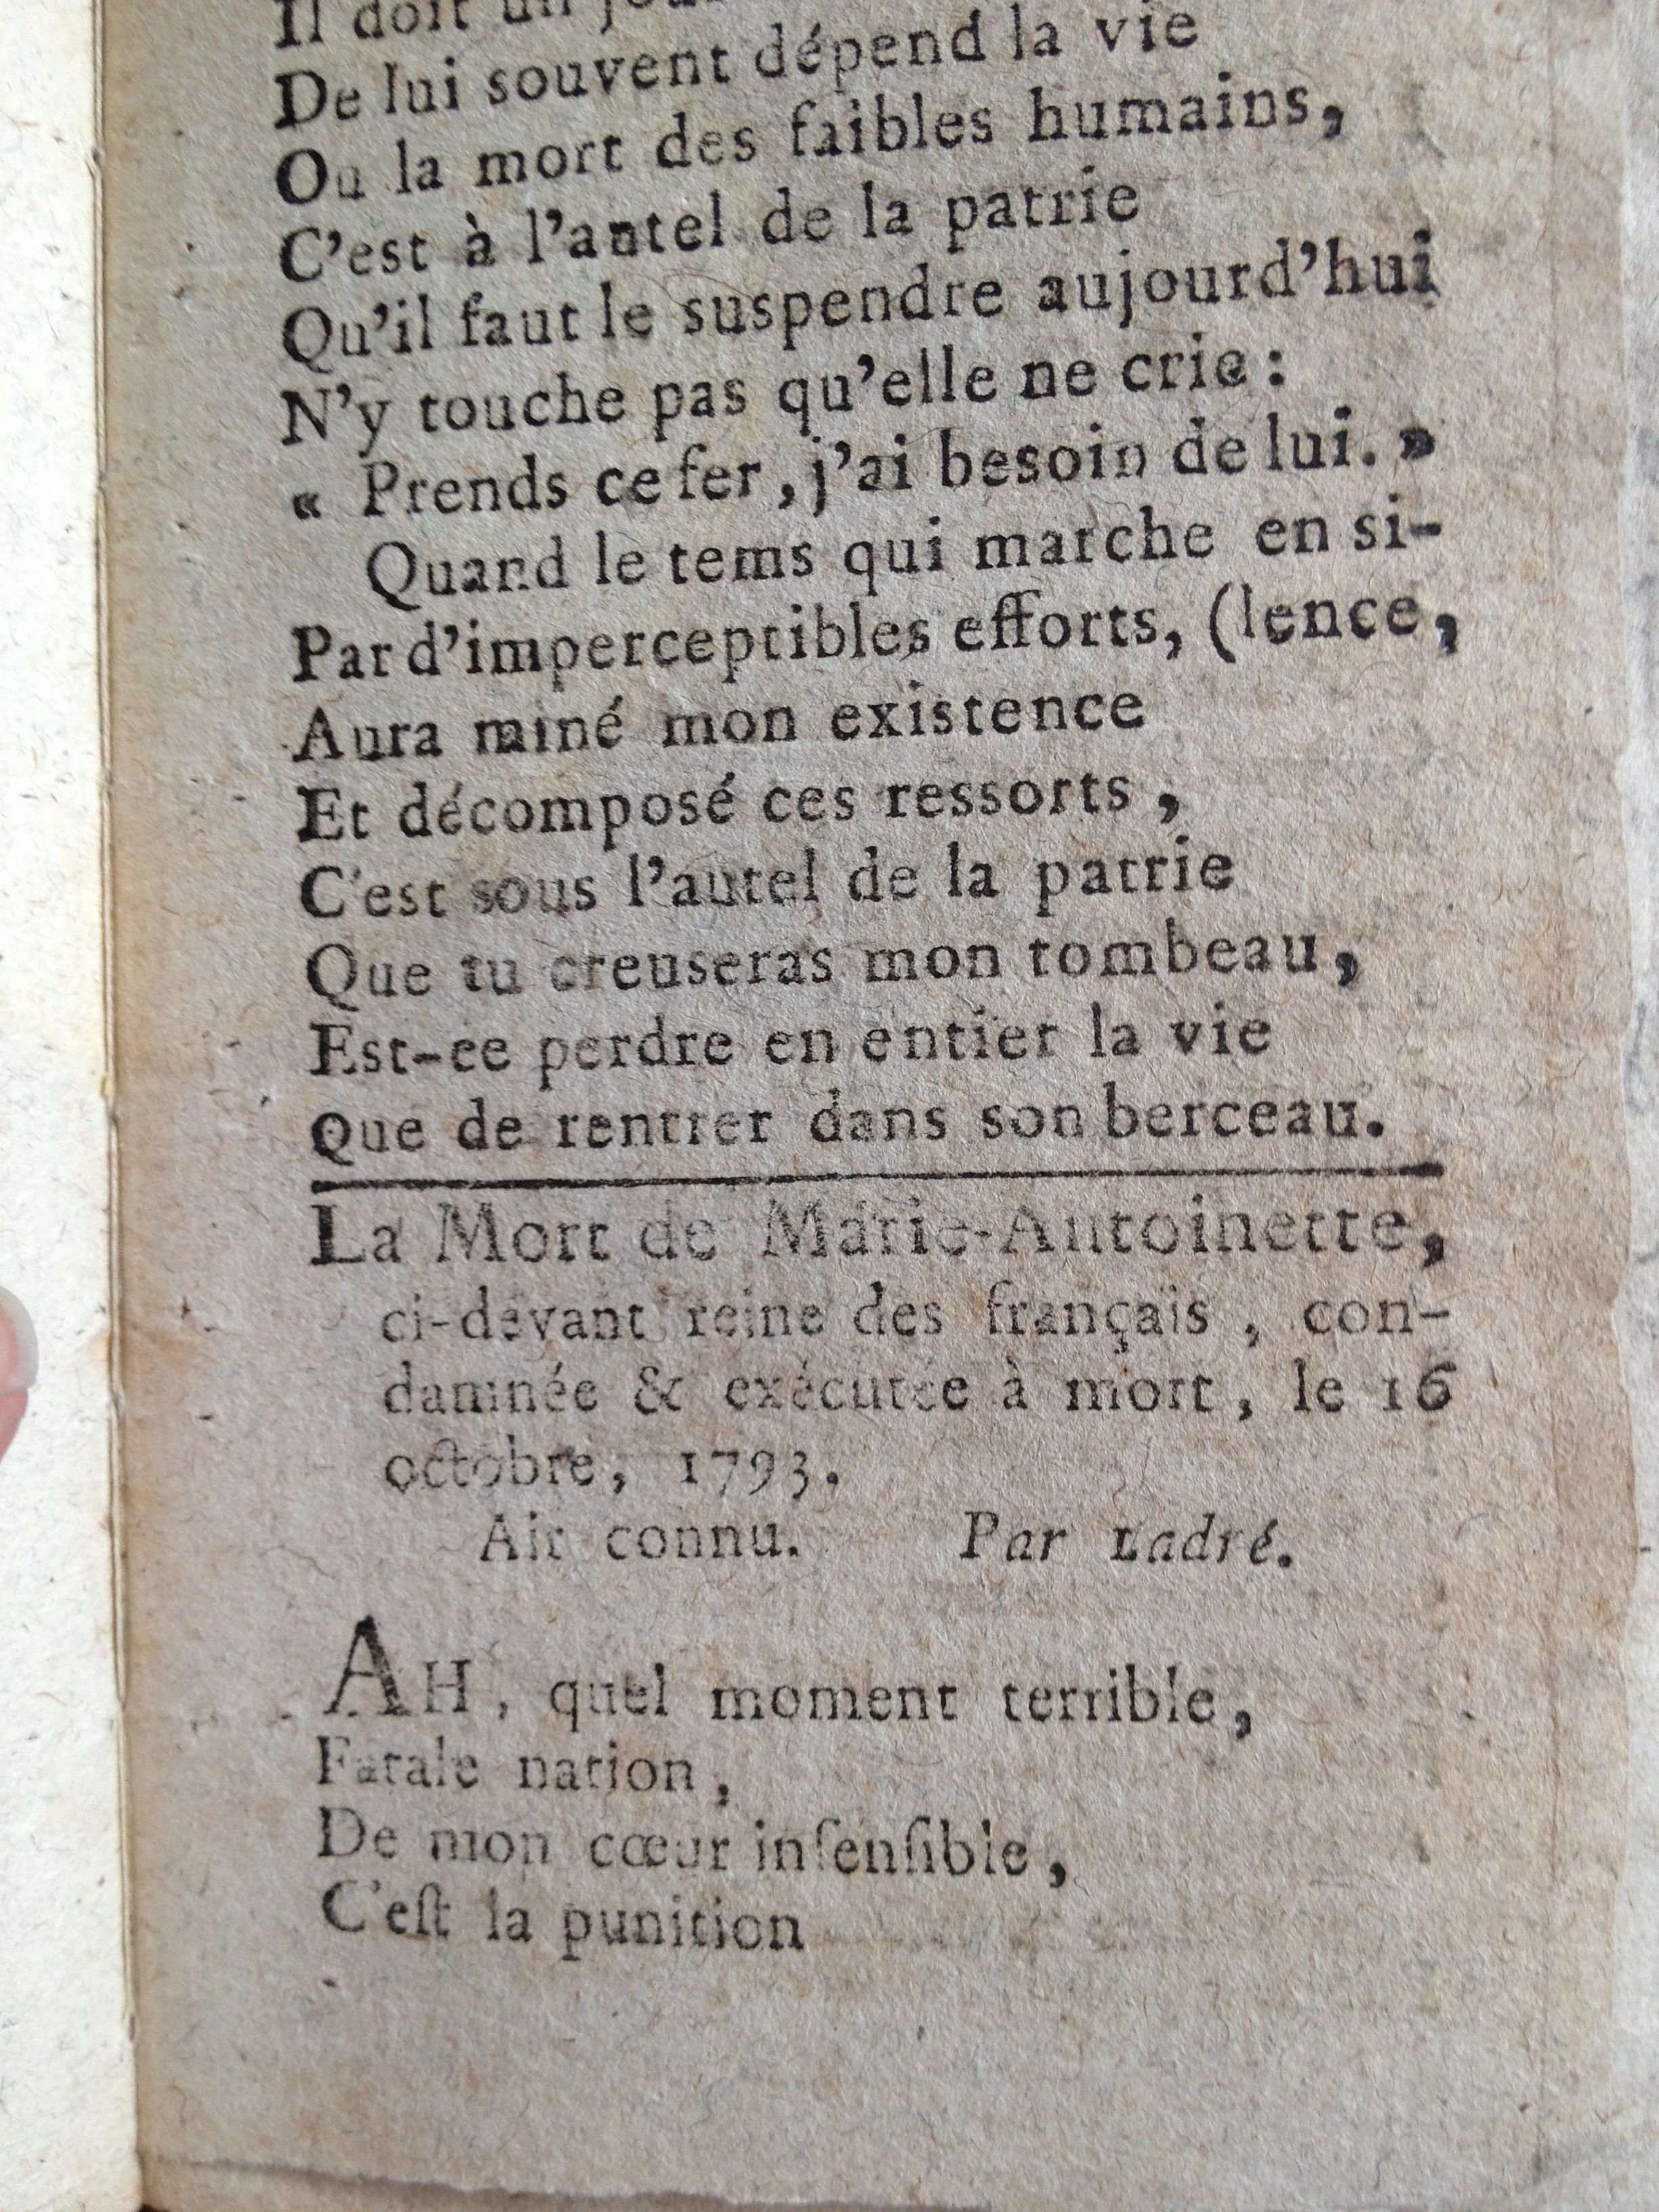 Il doit un jour
De lui souvent dépend la vie
Ou la mort des faibles humains,
C'est à l'autel de la patrie
Qu'il faut le suspendre aujourd'hui
N'y touche pas qu'elle ne crie :
« Prends ce fer, j'ai besoin de lui. »
Quand le tems qui marche en si-
Par d'imperceptibles efforts, (lence,
Aura miné mon existence
Et décomposé ces ressorts ,
C'est sous l'autel de la patrie
Que tu creuseras mon tombeau,
Est-ce perdre en entier la vie
Que de rentrer dans son berceau.
La Mort de Marie-Antoinette,
ci-devant reine des français , con-
damnée & exécutée à mort, le 16
octobre, 1793.
Air connu. Par Ladré.
AH, quel moment terrible,
Fatale nation,
De mon cœur inſenſible,
C'eſt la punition